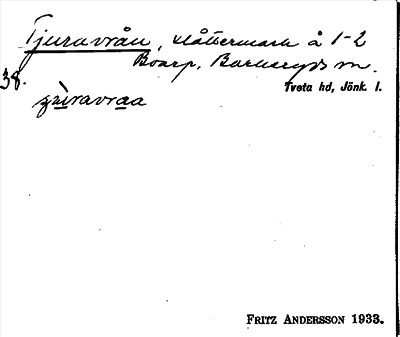 Tjuravrån, slåttermark å 1-2
Boarp, Barkeryds sn.
38.
Tveta hd, Jönk. l.
ravraa
FRITZ ANDERSSON 1933.